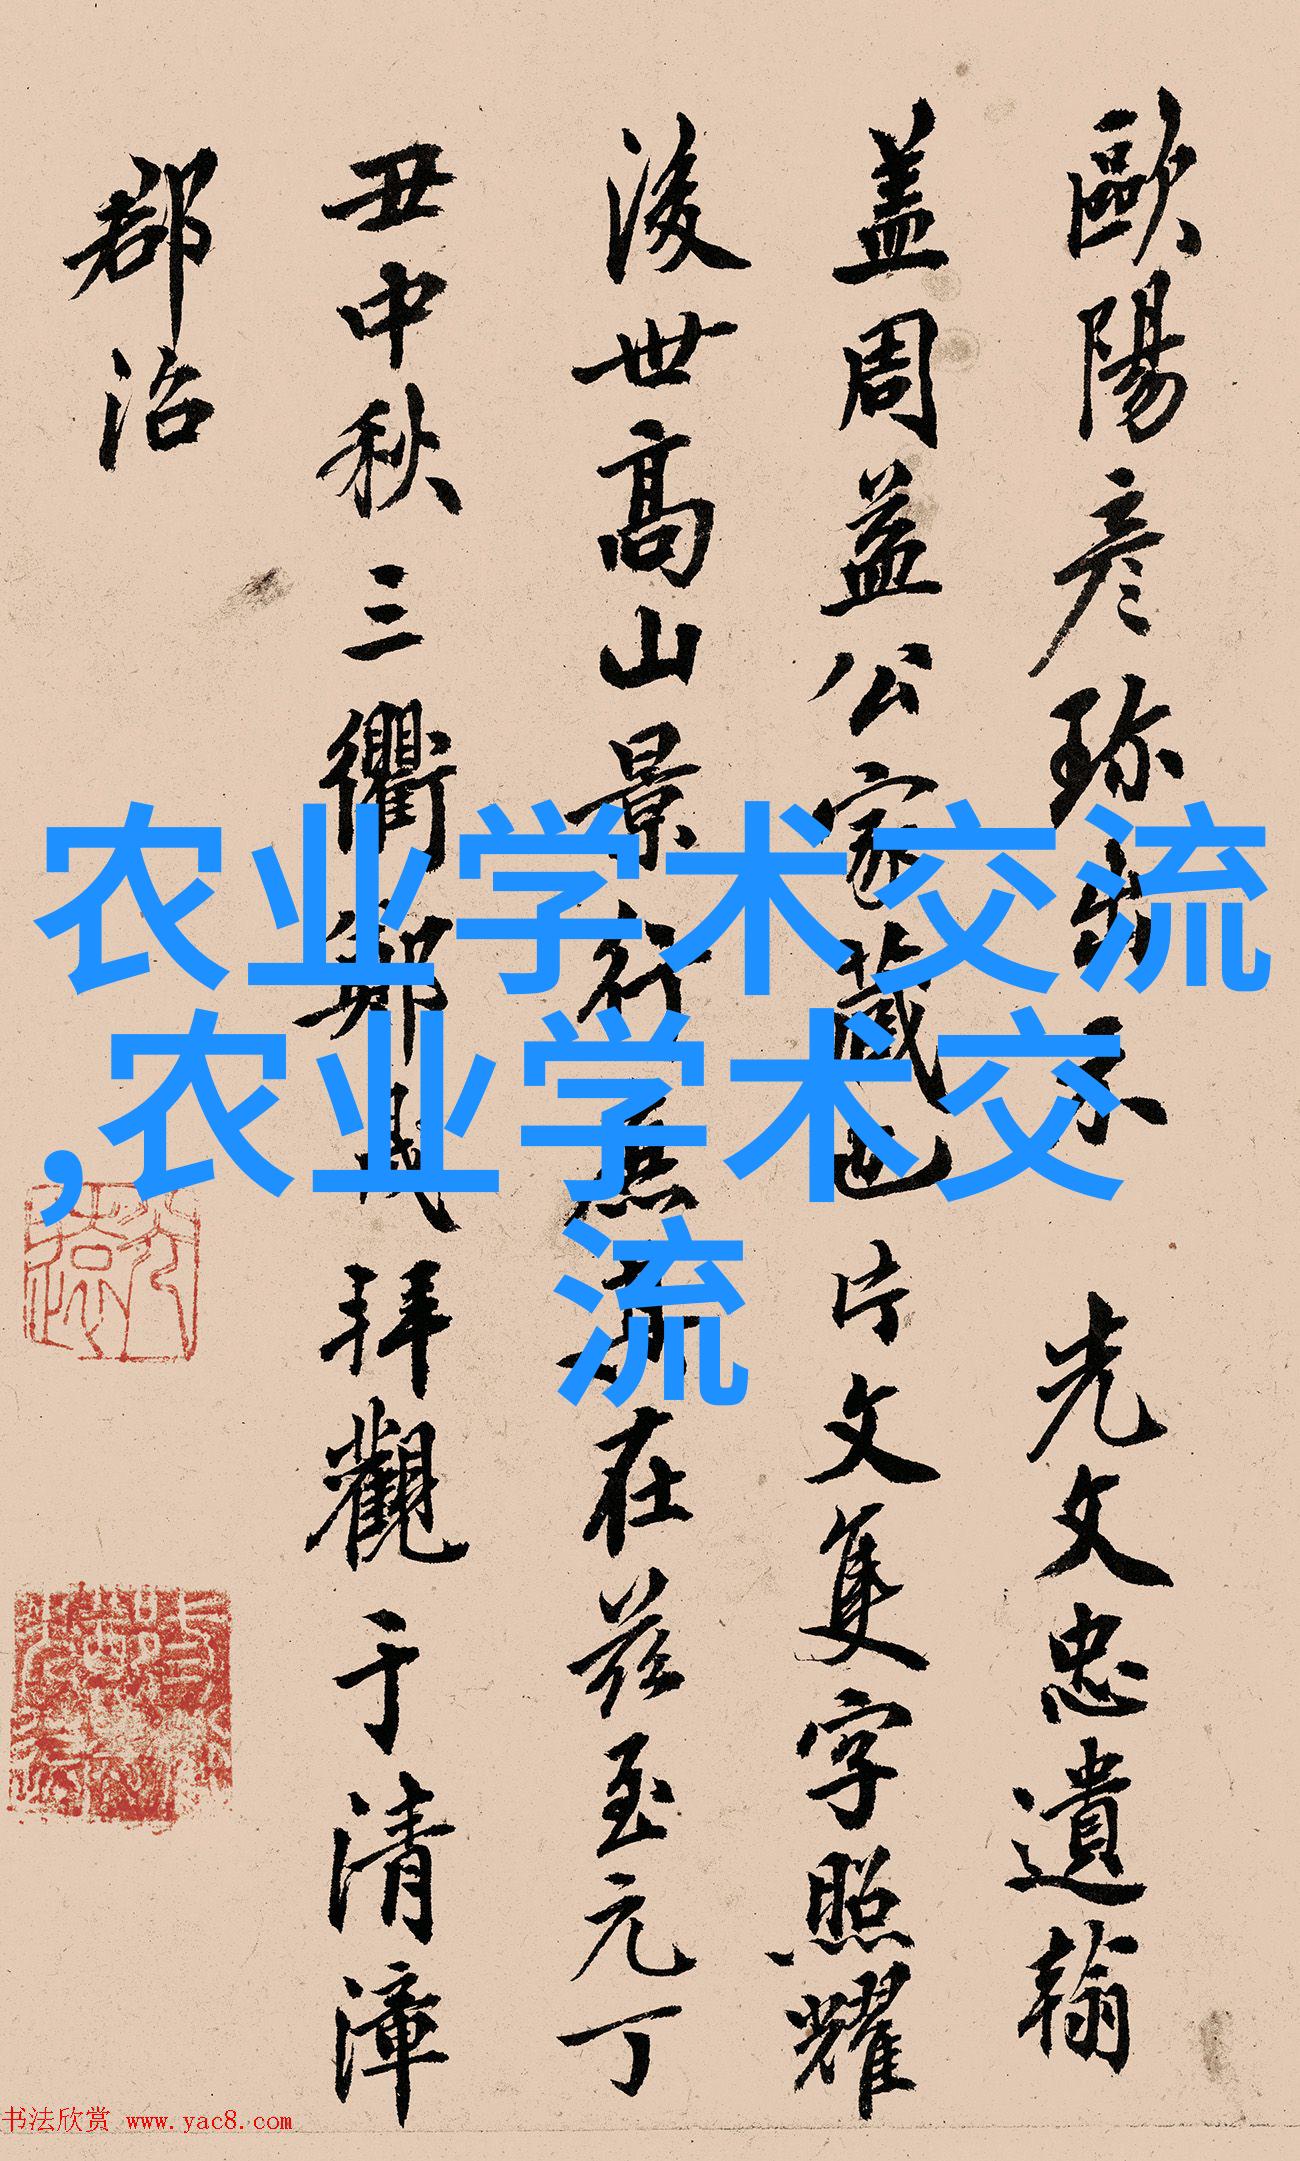 歐陽彦珎出示 光文忠遺翰
盖周益公家藏也片文隻字照耀
後世高山景行無
在茲至元丁
丑中秋三衢鄭
拜觀于清漳
郡治
农业学术交流
,农业学术交
流
书法欣赏 www.yac8.com